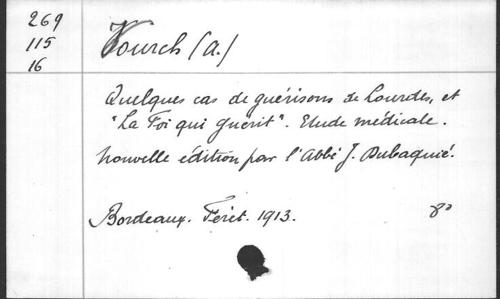 269
115
16
Vourch (A.)
Quelques cas de guérisons de Lourdes, et
"La Foi qui guérit". Etude médicale.
Nouvelle édition par l'Abbé J. Dubaquié.
Bordeaux. Féret. 1913. 8º